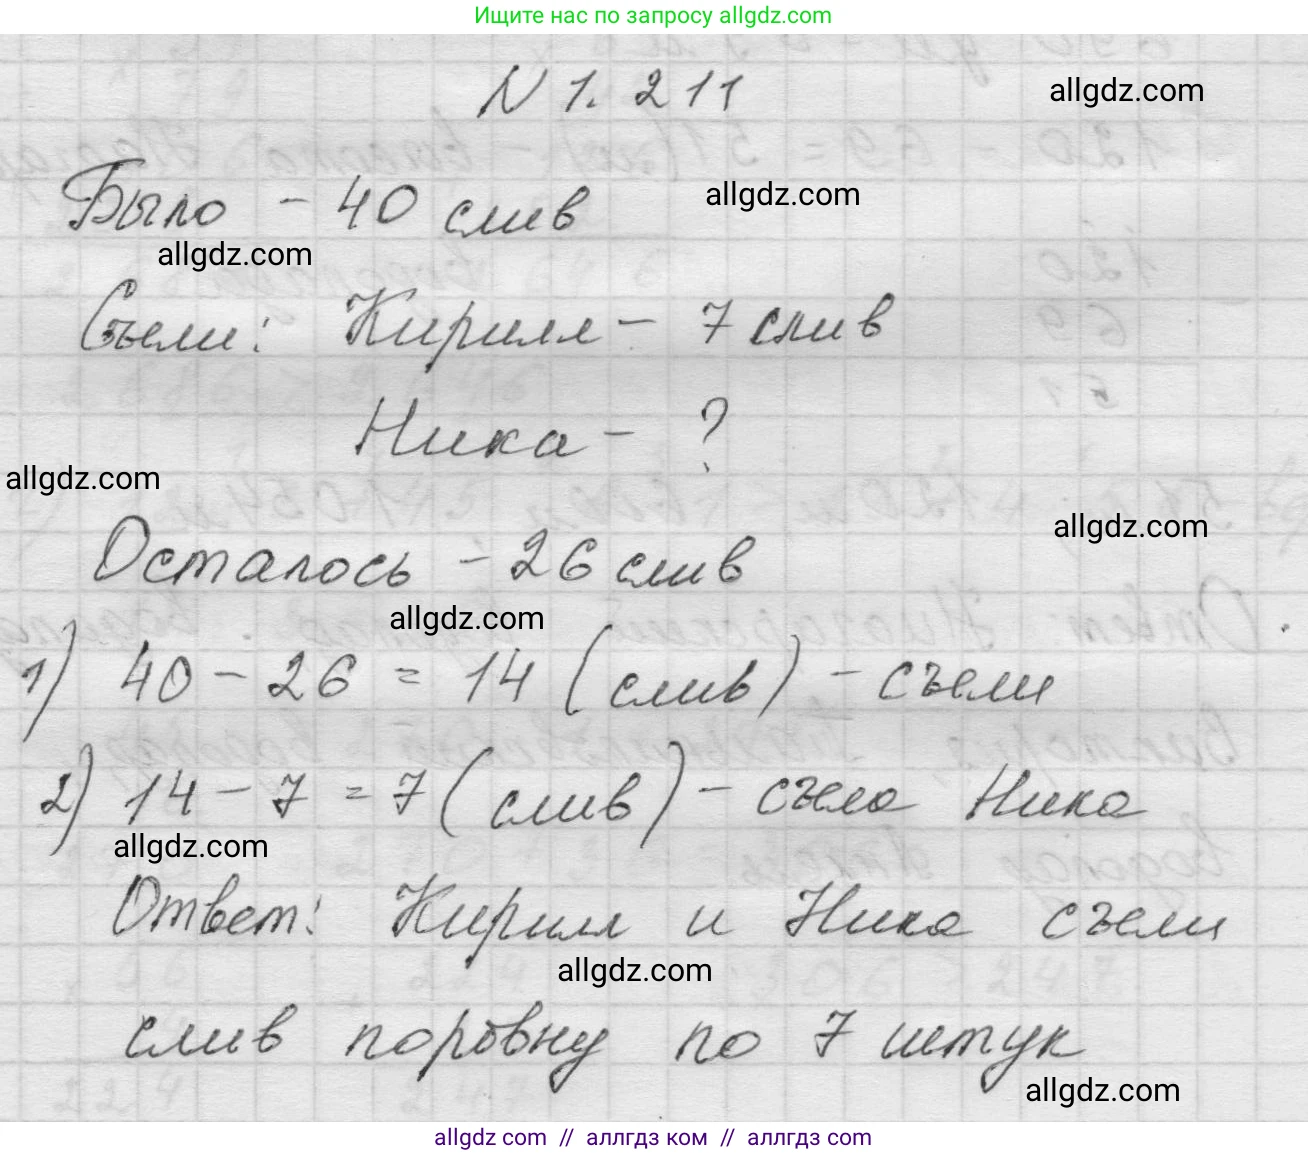 Ищите нас по запросу allgdz.com
N 1. 211
allgdz.com
Было - 40 слив
allgdz.com
allgdz.com
Съели: Кирилл - 7 слив
Ника - ?
allgdz.com
Осталось - 26 слив
allgdz.com
allgdz.com
1) 40 - 26 = 14 (слив) - съели
2) 14 - 7 = 7 (слив) - съела Ника
allgdz.com
Ответ: Кирилл и Ника съели
allgdz.com
слив поровну по 7 штук
allgdz.com
allgdz com // аллгдз ком // аллгтз com